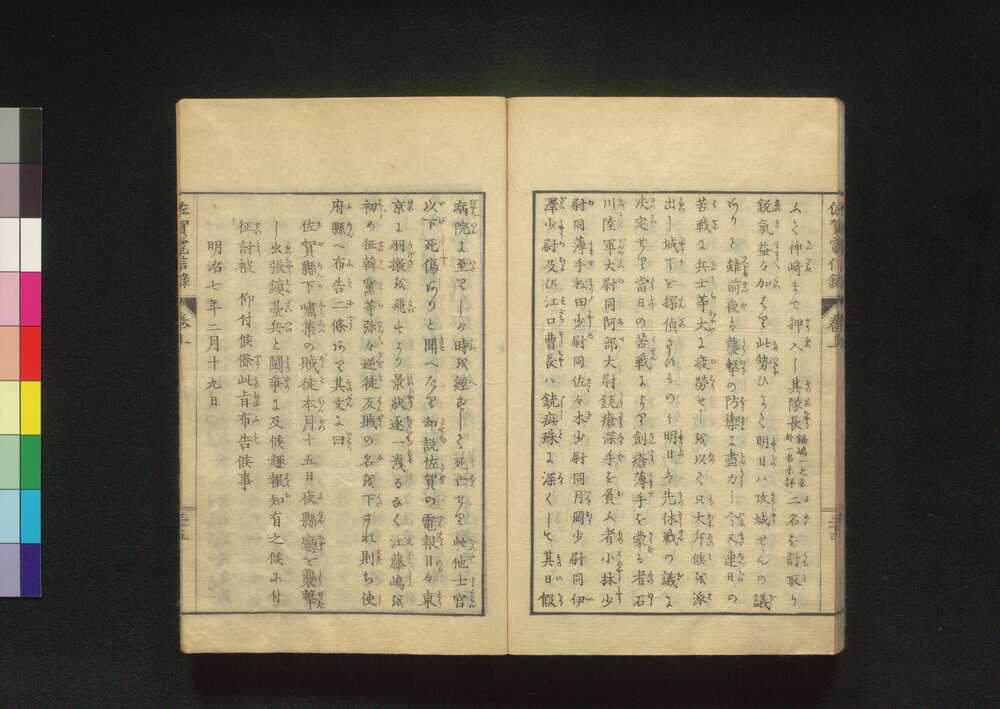 佐賀電信録 巻上
ふく神崎まで押入し其隊長 鍋嶋一之丞 外一名不詳 二名を討取り
鋭氣益々加はり此勢ひにて明日ハ攻城せんの議
ありと雖前夜ゟ襲撃の防禦に盡力し今又連日の
苦戦に兵士等大に疲労せしを以く只大斥候を派
出し城下を探偵さするのミ明日ゟ先休戦の議に
决定せり當日の苦戦により創瘡薄手を蒙る者石
川陸軍大尉同阿部大尉銃瘡深手を負ふ者小林少
尉同薄手松田少尉同佐々木少尉同月岡少尉同伊
澤少尉及び江口曹長ハ銃痍殊に深くして其日假
病院に至りしが時を經ずして死亡せり此他士官
以下死傷ありと聞へたり却説佐賀の電報日々東
京に羽檄を飛すより景状逐一洩るなく江藤嶋を
初め征韓黨等弥々逆徒及賊の名を下され則ち使
府縣へ布告二條あり其文に曰
佐賀縣下嘯集の賊徒本月十五日夜縣廳を襲撃
し出張鎮臺兵と闘争に及候趣報知有之候に付
征討被 仰付候條此旨布告候事
明治七年二月十九日
佐賀電信録 巻上